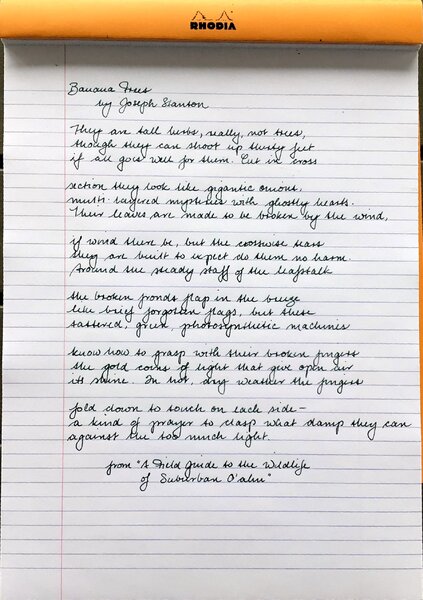 RHODIA
Banana Trees
by Joseph Stanton
They are tall herbs, really, not trees,
though they can shoot up thirty feet
if all goes well for them. Cut in cross
section they look like gigantic onions,
multi-layered mysteries with ghostly hearts.
Their leaves are made to be broken by the wind,
if wind there be, but the crosswise tears
they are built to expect do them no harm.
Around the steady staff of the leafstalk
the broken fronds flap in the breeze
like brief forgotten flags, but these
tattered, green, photosynthetic machines
know how to grasp with their broken fingers
the gold coins of light that give open air
its shine. In hot, dry weather the fingers
fold down to touch on each side—
a kind of prayer to clasp what damp they can
against the too much light.
from "A Field Guide to the Wildlife
of Suburban O'ahu"